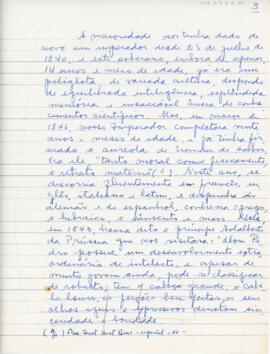 3
A maioridade nos tinha dado de
novo um imperador desde 23 de julho de
1840, e este soberano, embora de apenas,
14 anos e meses de idade, já era um
poliglota, de variada cultura, dispondo
de equilibrada inteligência, esplêndida
memória e insaciável ânsia de conhe
cimentos científicos. Mas, em março de
1846, nosso imperador completára vinte
anos e meses de idade, e já tinha fir
mado a auréola de homem de saber.
Era ele "tanto moral como fisicamente
o retrato materno" (1). Neste ano, se
discorria fluentemente em francês, in
glês, italiano e latim, e dispunha do
alemão e do espanhol, conhecia o grego
o hebraico, o sanscrito e mais. Dele
em 1843, havia dito o príncipe Adalberto
da Prússia que nos visitára: "Dom Pe
dro possue um desenvolvimento extra
ordinário de intelecto, e apesar de
muito jovem ainda, pode-se classificar
de robusto; tem a cabeça grande, o cabe
lo louro, as feições bem feitas; os seus
olhos azues e expressivos denotam sin
ceridade e bondade